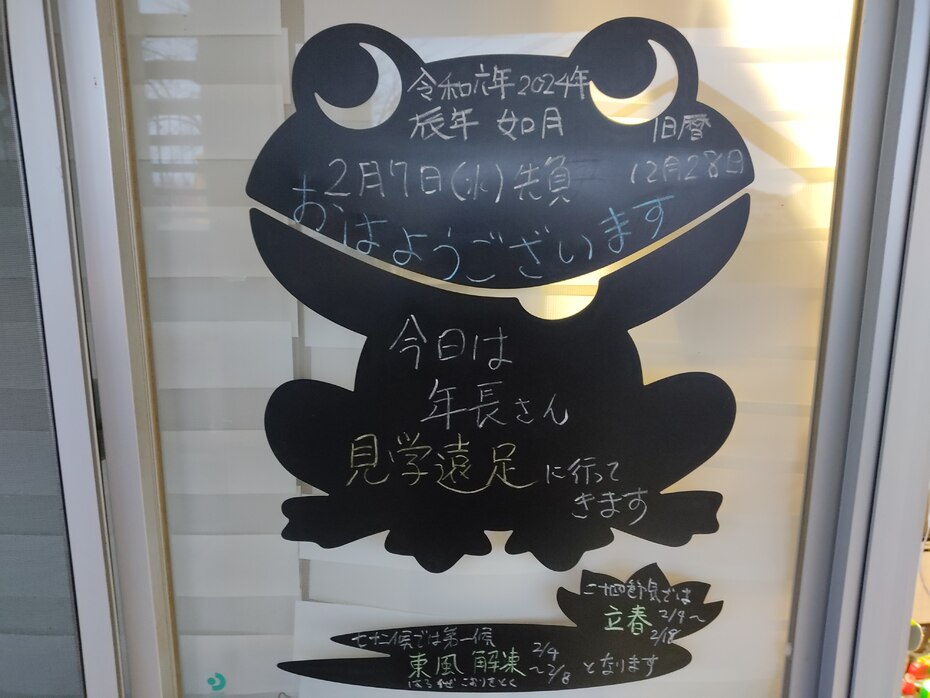 令和六年 2024年
辰年 如月
旧暦
12月28日
2月7日(水)先負
おはようございます
今日は
年長さん
見学遠足に行って
きます
二十四節気では
立春 2/4〜
2/18
七十二候では第一候
東風解凍 2/4
〜2/8 となります
はるかぜこおりをとく